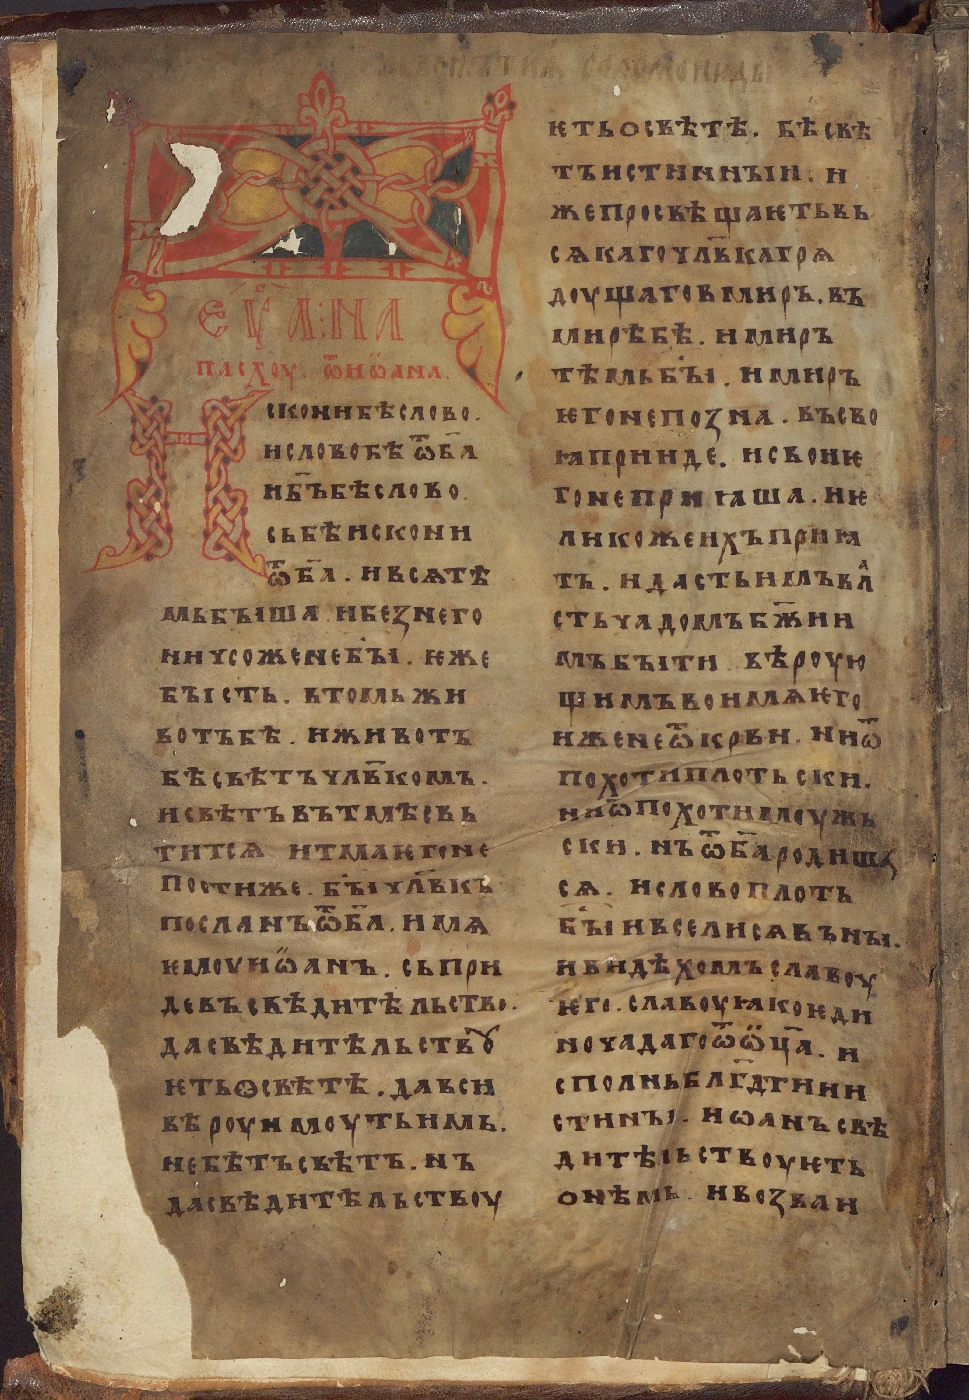 соломониди
еѵⷢа҃:на
пасхоу. ѿ иѡана.
Искони бѣ слово.
и слово бѣ ѿ б҃а
и б҃ъ бѣ слово.
сь бѣ искони
ѿ б҃а. и всѧ тѣ
мь быша и без него
ничсоже не бы. еже
бысть. в томь жи
вотъ бѣ. и животъ
бѣ свѣтъ чл҃вкомъ.
и свѣтъ въ тмѣ свь
титсѧ и тма его не
постиже. бы чл҃вкъ
посланъ ѿ б҃а. имѧ
ѥмоу иѡанъ. сь при
де въ свѣдитѣльство.
да свѣдитѣльствꙋ
ѥть ѳ свѣтѣ. да вси
вѣроу имоуть имь.
не бѣ тъ свѣтъ. нъ
да свѣдитѣльствоу
ѥть о свѣтѣ. бѣ свѣ
тъ истинныи. и
же просвѣщаѥть вь
сѧкаго чл҃вка грѧ
доущаго в миръ. въ
мирѣ бѣ. и мир
тѣмь бы. и миръ
ѥго не позна. въ сво
ꙗ приде. и свои ѥ
го не приꙗша. и ѥ
лико же ихъ приꙗ
тъ. и дасть имъ вла
сть чадомъ бж҃ии
мъ быти вѣроую
щимъ во имѧ ѥго
иже не ѿ крви. ни ѿ
похоти плотьски.
ни ѿ похоти моужь
ски. нъ ѿ б҃а родишѧ
сѧ. и слово плоть
бы и вселисѧ въ ны.
и видѣхомъ славоу
ѥго. славоу ꙗко ѥди
ночадаго ѿ ѡц҃а. и
сполнь благⷣти и и
стины. иѡанъ свѣ
дитѣльствоуѥть
о нѣмь. и возва и